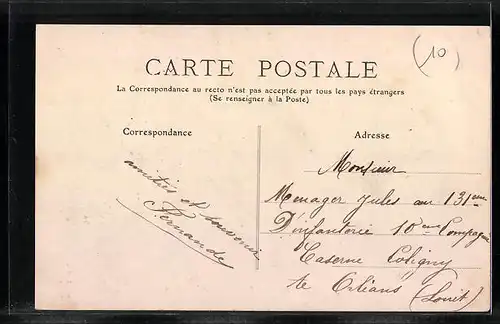 (10)
CARTE POSTALE
La Correspondance au recto n'est pas acceptée par tous les pays étrangers
(Se renseigner à la Poste)
Correspondance
Adresse
amitiés et souvenir
Fernande
Monsieur
Menager Jules au 131eme
D'infanterie 10eme Compagnie
Caserne Coligny
te Orléans (Loiret)